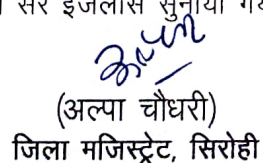 सर इजलास सुनाया गय
(अल्पा चौधरी)
जिला मजिस्ट्रेट, सिरोही